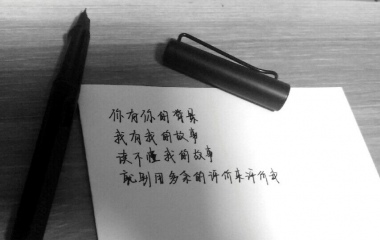 你有你的背景
我有我的故事
读不懂我的故事
就别用多余的评价来评价我